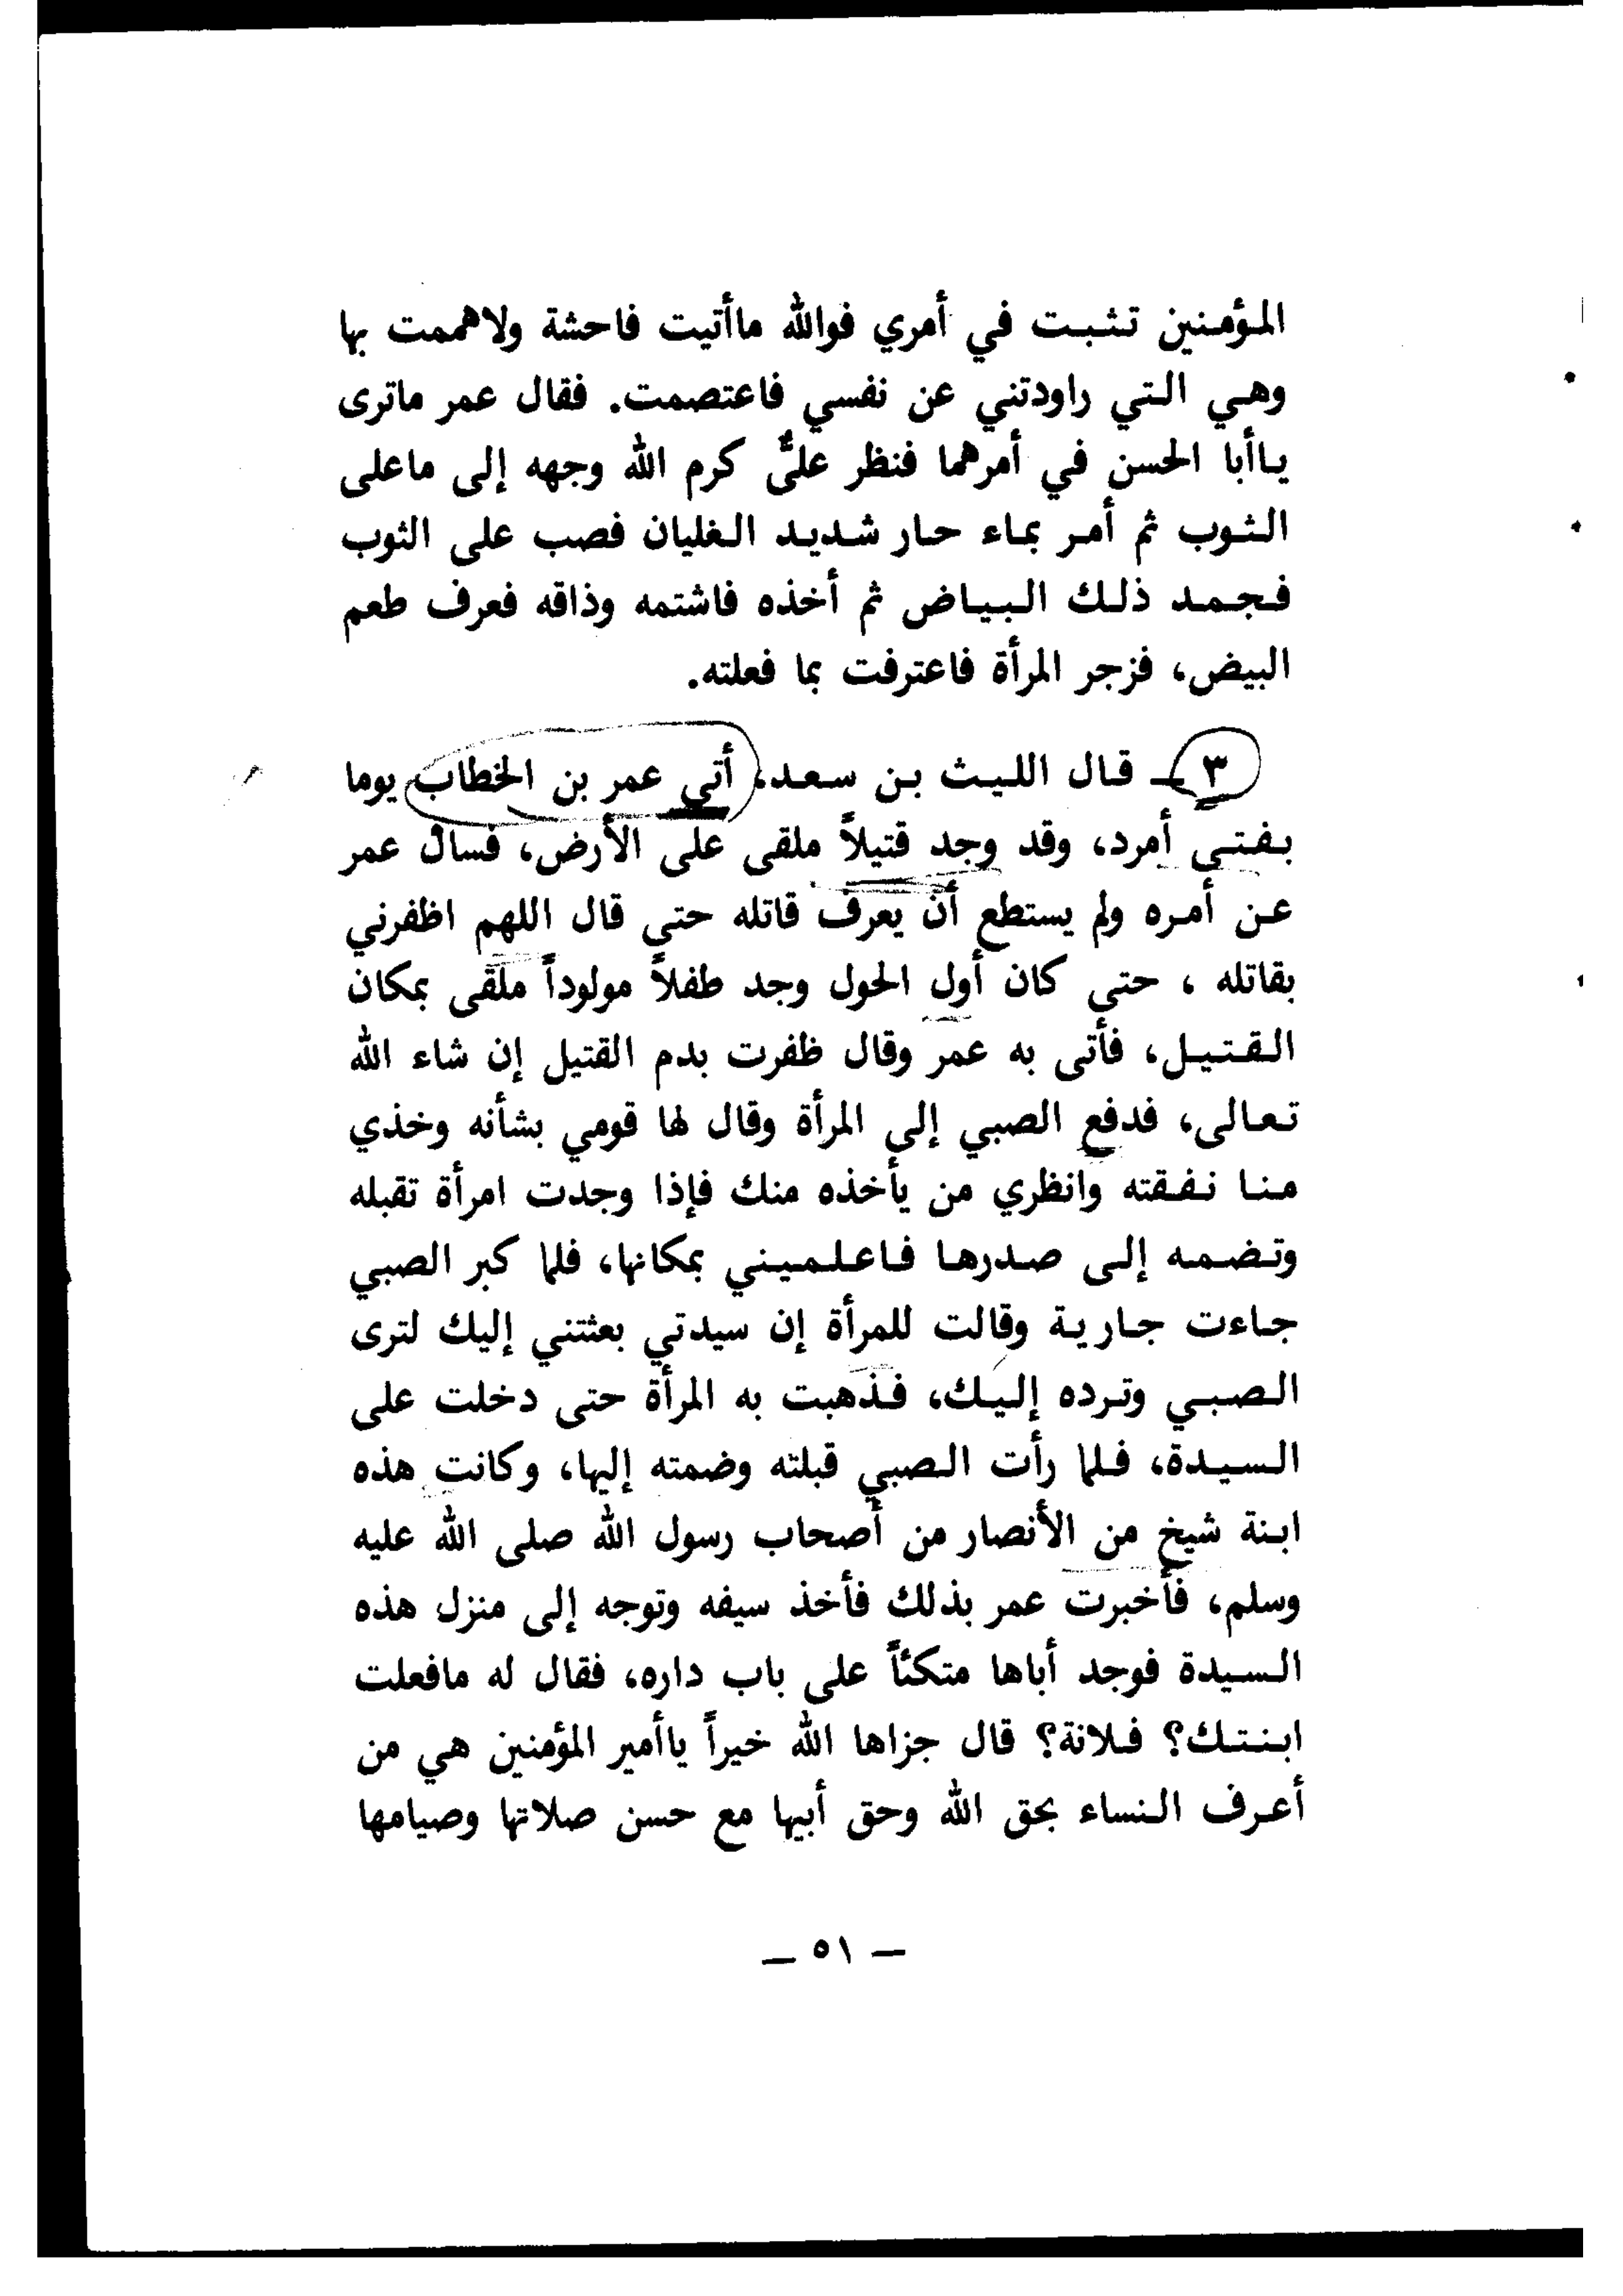 المؤمنين تثبت في أمري فوالله ماأتيت فاحشة ولاهممت بها
وهي التي راودتني عن نفسي فاعتصمت. فقال عمر ماترى
ياأبا الحسن في أمرهما فنظر عليٌّ كرم الله وجهه إلى ماعلى
الثوب ثم أمر بماء حار شديد الغليان فصب على الثوب
فجمد ذلك البياض ثم أخذه فاشتمه وذاقه فعرف طعم
البيض، فزجر المرأة فاعترفت بما فعلته.
٣ ـ قال الليث بن سعد، أتي عمر بن الخطاب يوما
بفتى أمرد، وقد وجد قتيلاً ملقى على الأرض، فسأل عمر
عن أمره ولم يستطع أن يعرف قاتله حتى قال اللهم اظفرني
بقاتله ، حتى كان أول الحول وجد طفلاً مولوداً ملقى بمكان
القتيل، فأتى به عمر وقال ظفرت بدم القتيل إن شاء الله
تعالى، فدفع الصبي إلى المرأة وقال لها قومي بشأنه وخذي
منا نفقته وانظري من يأخذه منك فإذا وجدت امرأة تقبله
وتضمه إلى صدرها فاعلميني بمكانها، فلما كبر الصبي
جاءت جارية وقالت للمرأة إن سيدتي بعثتني إليك لترى
الصبي وترده إليك، فذهبت به المرأة حتى دخلت على
السيدة، فلما رأت الصبي قبلته وضمته إليها، وكانت هذه
ابنة شيخ من الأنصار من أصحاب رسول الله صلى الله عليه
وسلم، فأخبرت عمر بذلك فأخذ سيفه وتوجه إلى منزل هذه
السيدة فوجد أباها متكئاً على باب داره، فقال له مافعلت
ابنتك؟ فلانة؟ قال جزاها الله خيراً ياأمير المؤمنين هي من
أعرف النساء بحق الله وحق أبيها مع حسن صلاتها وصيامها
ـ ٥١ ـ